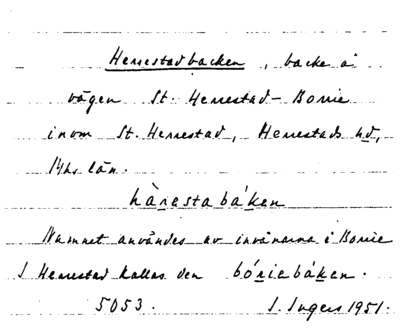 Herrestadbacken, backe å
vägen St. Herrestad - Borrie
inom St. Herrestad, Herrestads hd,
Mhs län.
hàrestabáken
Namnet användes av invånarna i Borrie
I Herrestad kallas den bóriebáken.
5053. I. Ingers 1951.